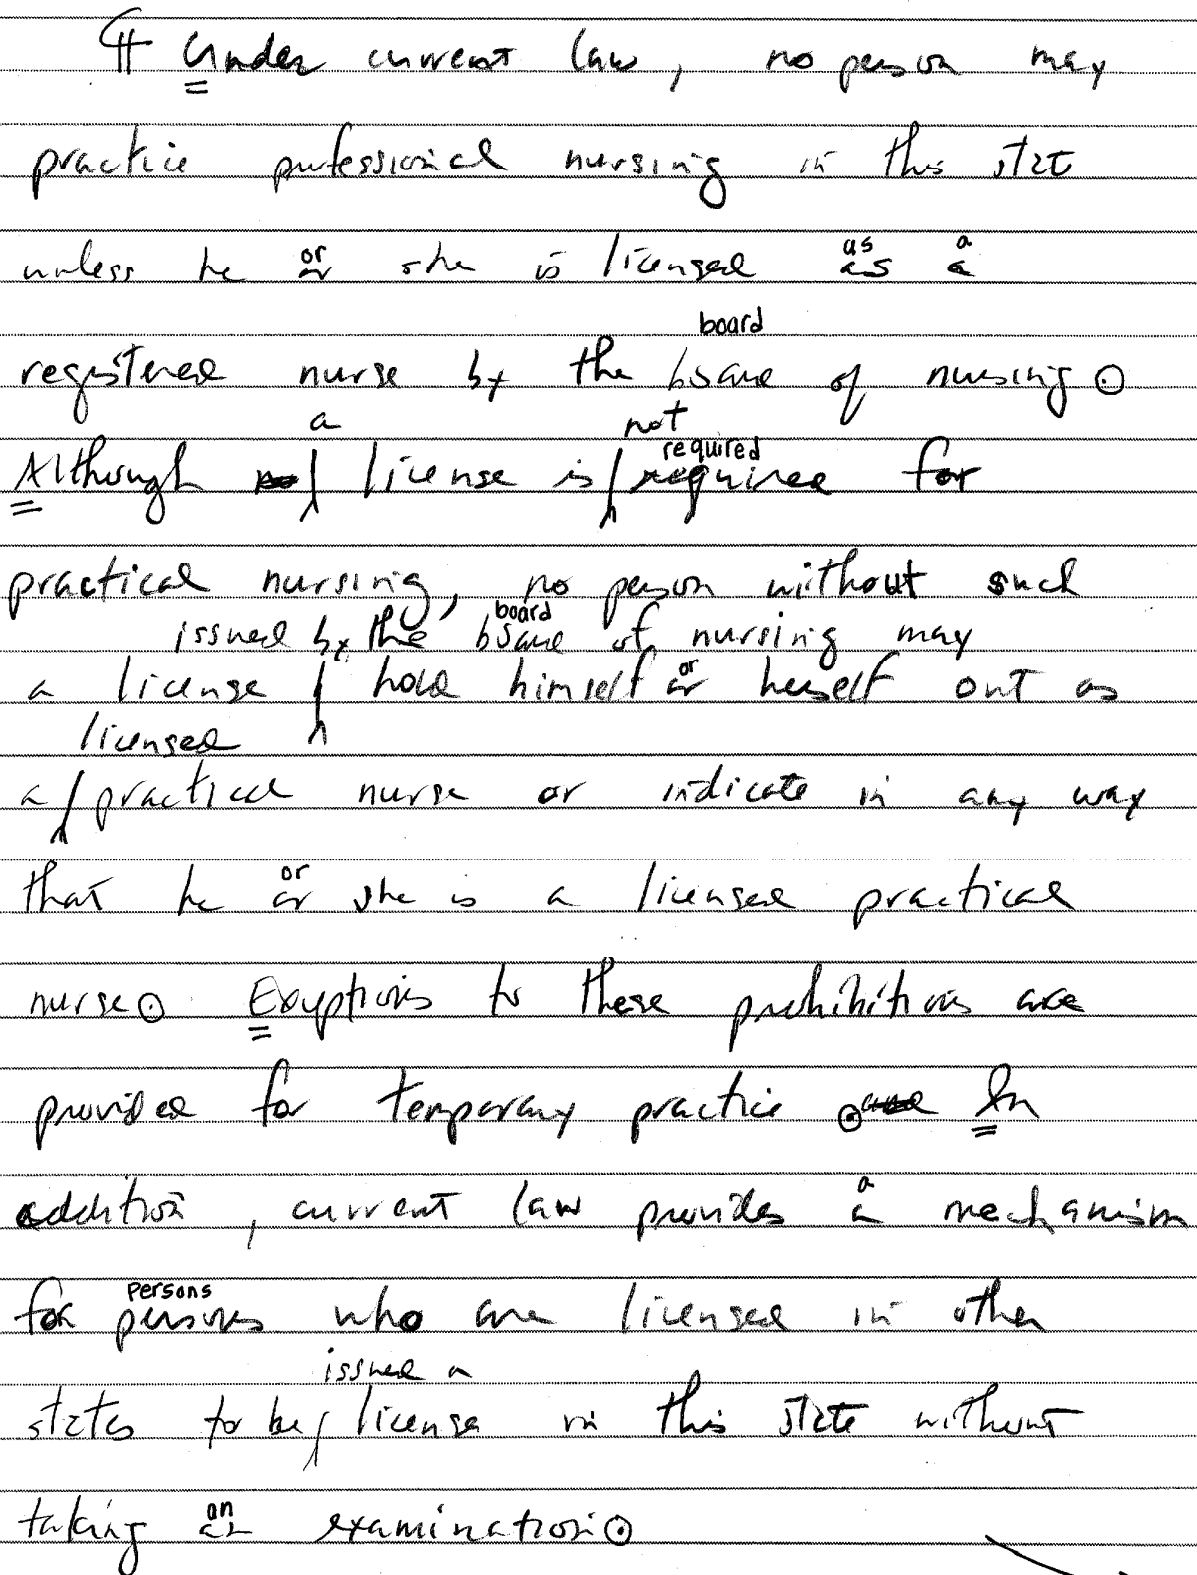 ¶ Under current law, no person may
practice professional nursing in this state
or as a
unless he or she is licensed as a
board
registered nurse by the board of nursing.
a not
required
Although no license is required for
practical nursing, no person without such
board
issued by the board of nursing may
or
a license hold himself or herself out as
licensed
a practical nurse or indicate in any way
or
that he or she is a licensed practical
nurse. Exceptions to these prohibitions are
provided for temporary practice. and In
a
addition, current law provides a mechanism
persons
for persons who are licensed in other
issued a
states to be license in this state without
an
taking an examination.